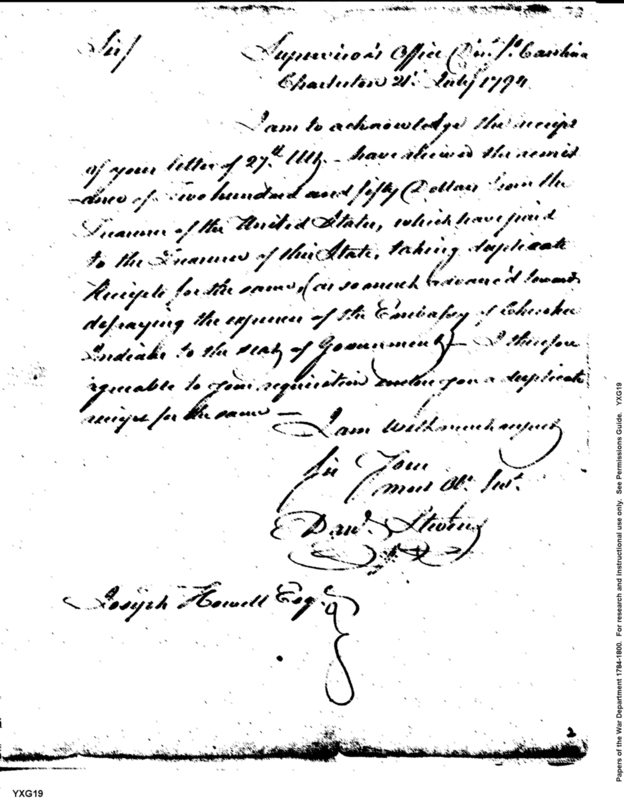 Sir/
Supervisor's Office Dist. So. Carolina
Charleston 21st. July 1794
I am to acknowledge the receipt
of your letter of 27th. Ulto. have received the remit
-ance of Two hundred and fifty Dollars from the
Treasurer of the United States, which have paid
to the Treasurer of this State, taking duplicate
Receipts for the same, (as so much advanced towards
defraying the expences of the Embassy of Cherokee
Indians to the seat of Government) — I therefore
agreeable to your requisition enclose you a duplicate
receipt for the same —
I am with much respect
Sir Your
most Obt. Servt.
Danl. Stevens
Joseph Howell Esqr.
2
YXG19
Papers of the War Department 1784-1800. For research and instructional use only. See Permissions Guide. YXG19